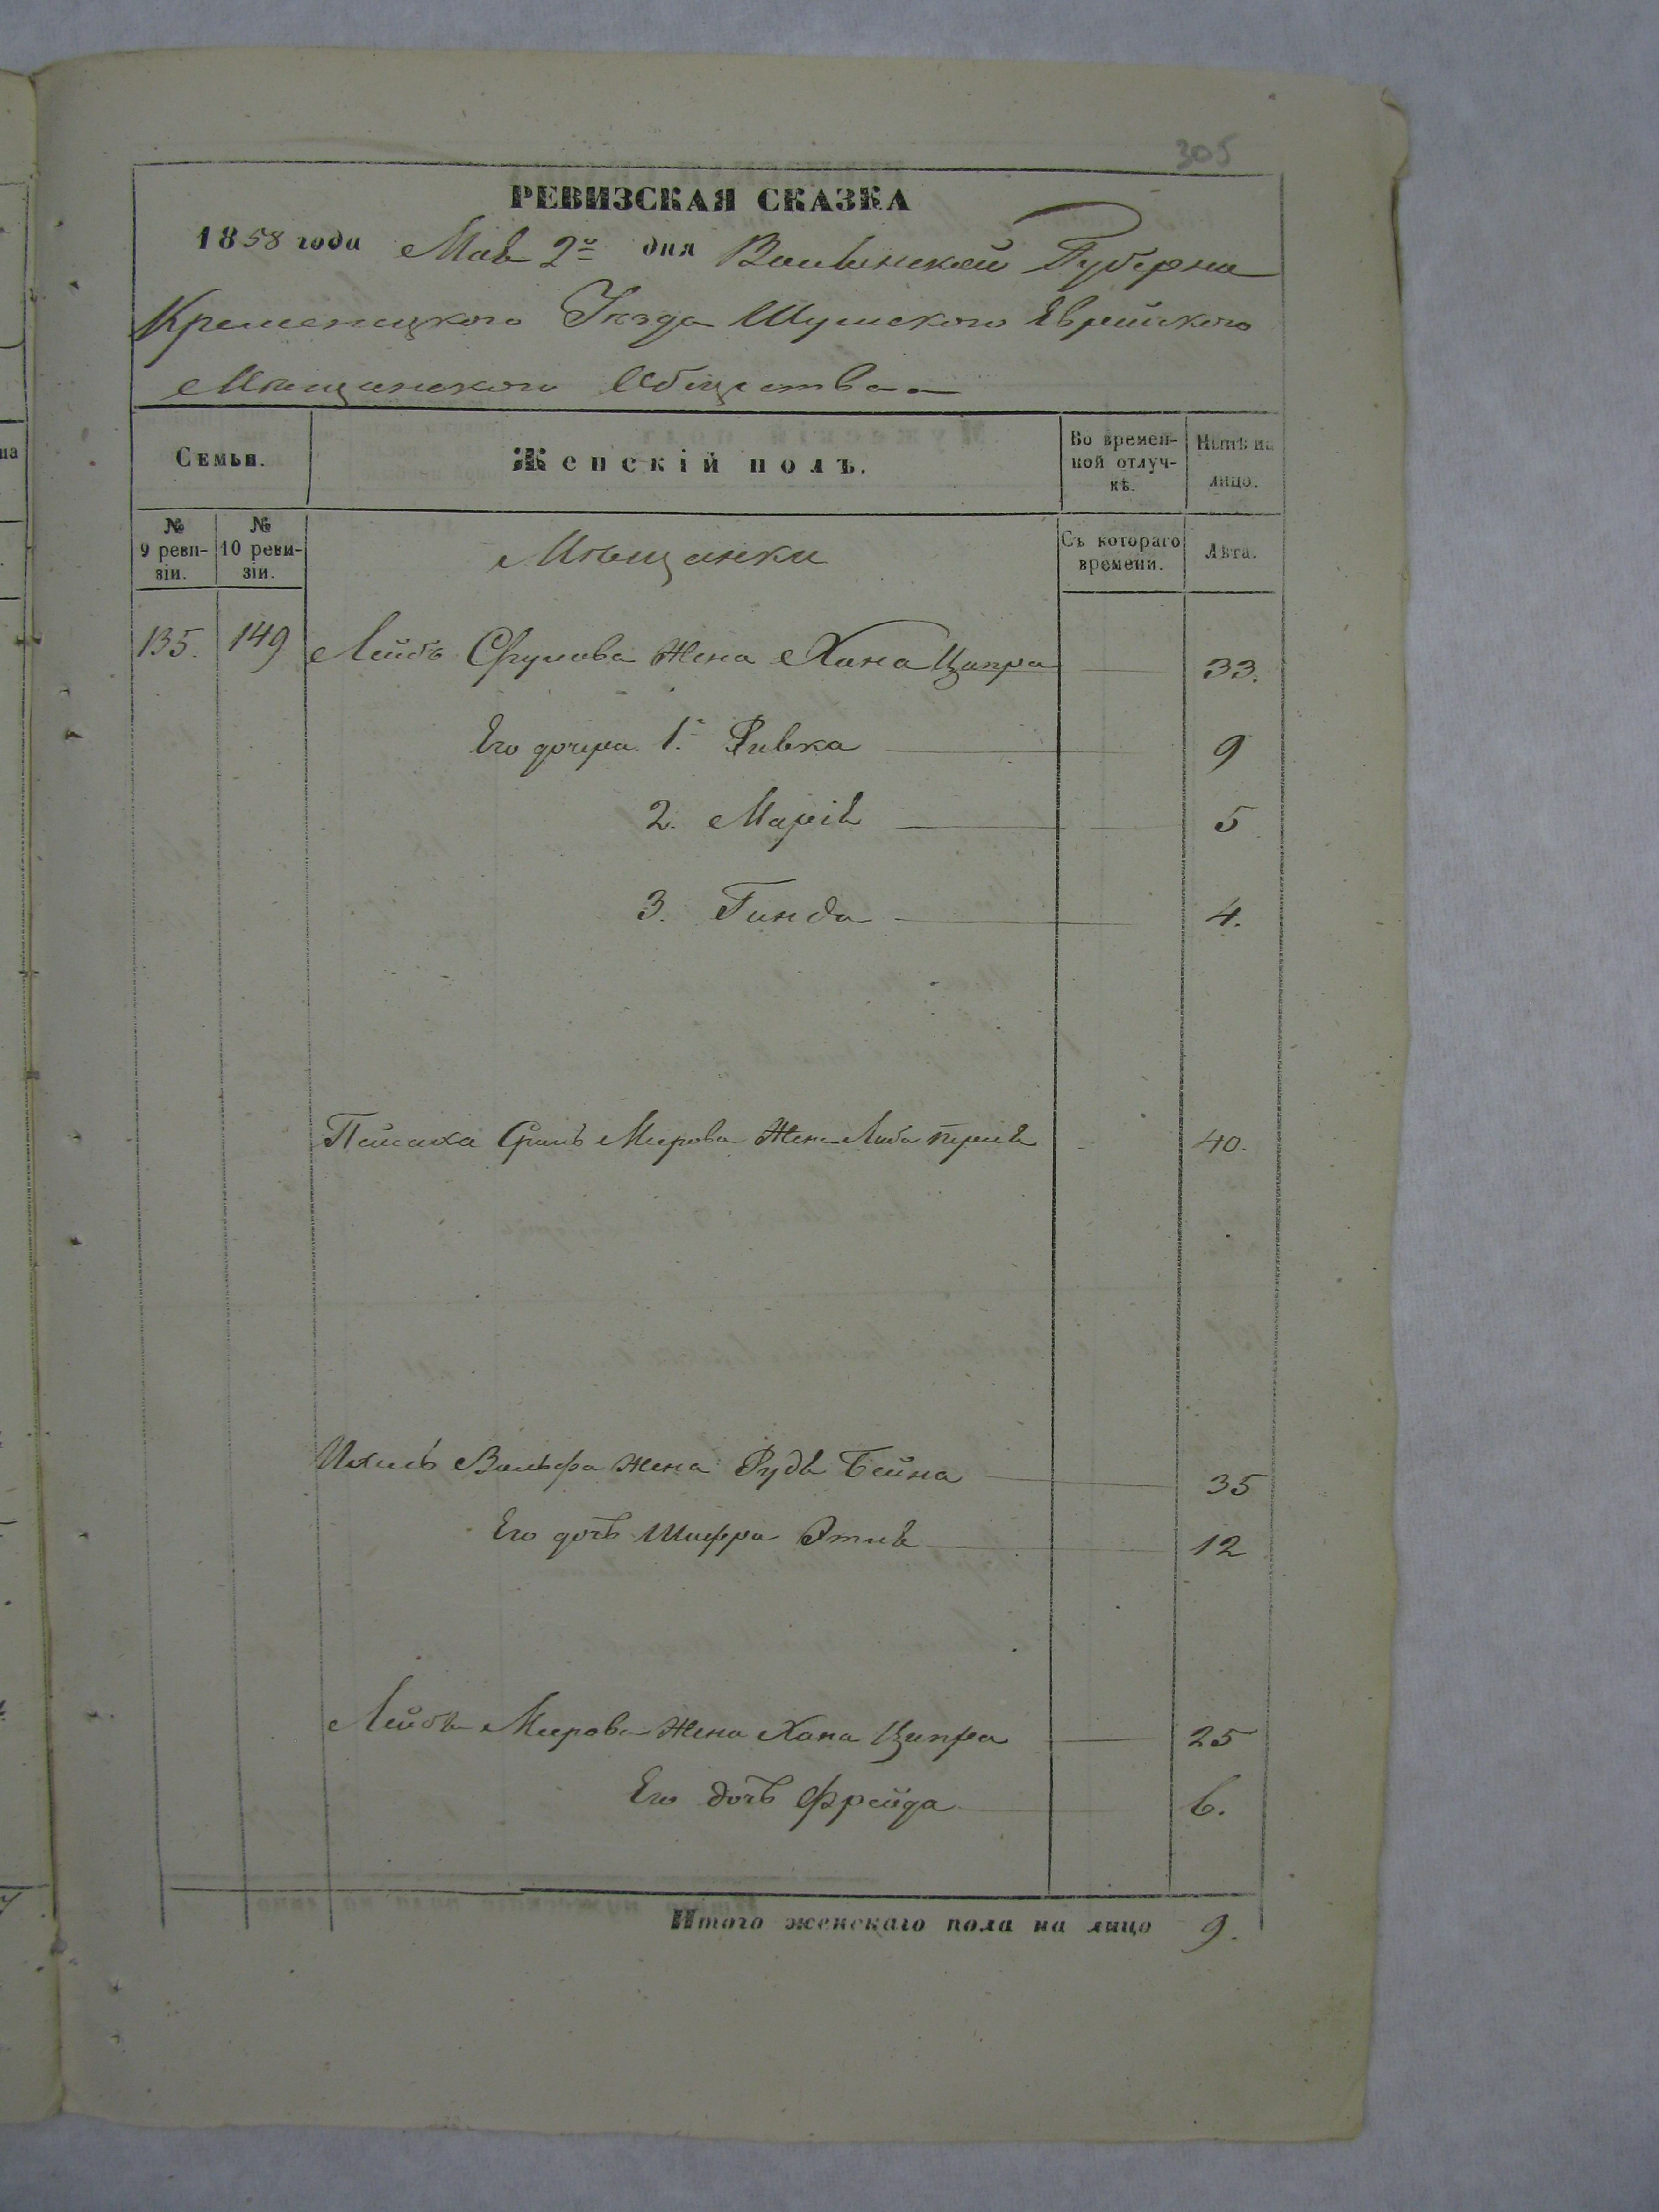 305
РЕВИЗСКАЯ СКАЗКА
1858 года Мая 2го дня Волынской Губерни
Кременецкого Уѣзда Шумского Еврейского
Мѣщанского Общества
Семьи. Женскій полъ. Во времен-ной отлуч-кѣ. Нынѣ на лицо.
№ 9 реви-зіи. № 10 реви-зіи. Мѣщанки Съ котораго времени. Лѣта.
135. 149 Лейбъ Срулова жена Хана Ципра 33.
Его дочери 1. Ривка 9
2. Марія 5
3. Гинда 4.
Пейсаха Сруль Меерова Жена Либа 40.
Ихиль Вольфа жена Рудя Бейна 35
Его дочь Шифра Этля 12
Лейбы Меерова Жена Хана Ципра 25
Его дочь Фрейда 6.
Итого женскаго пола на лицо 9.